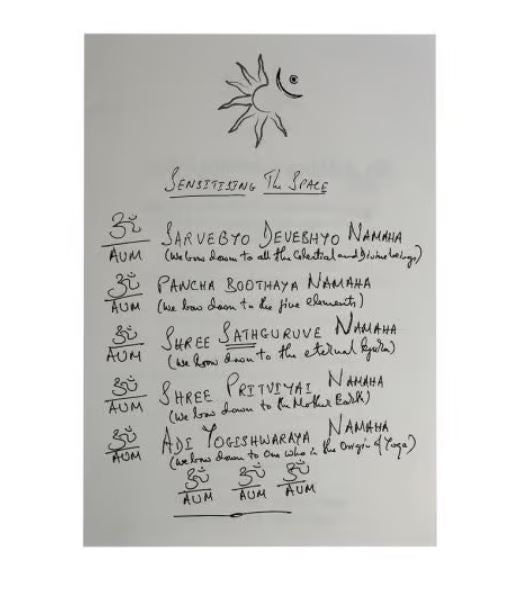 SENSITISING The SPACE
ॐ AUM SARVEBYO DEVEBHYO NAMAHA
(We bow down to all the Celestial and Divine beings)
ॐ AUM PANCHA BOOTHAYA NAMAHA
(We bow down to the five elements)
ॐ AUM SHREE SATHGURUVE NAMAHA
(We bow down to the eternal guru)
ॐ AUM SHREE PRITVIYAI NAMAHA
(We bow down to the Mother Earth)
ॐ AUM ADI YOGISHWARAYA NAMAHA
(We bow down to One who is the Origin of Yoga)
ॐ ॐ ॐ
AUM AUM AUM